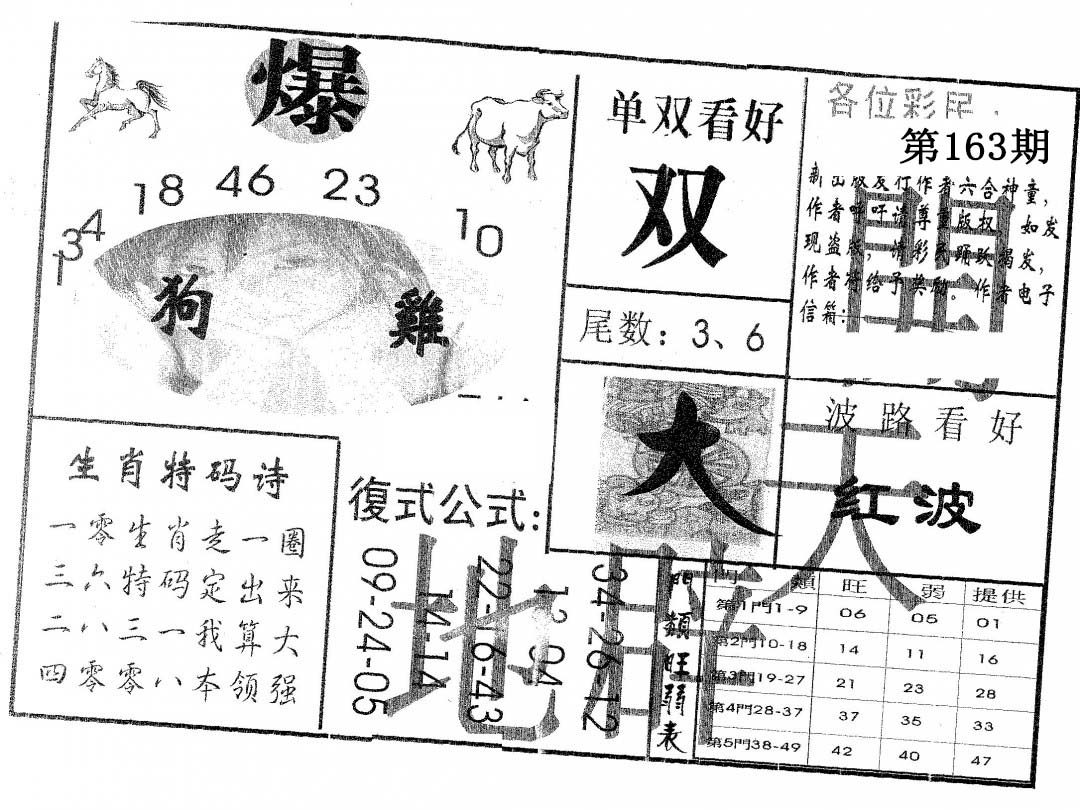 爆
18 46 23
10
34
1
狗 雞
单双看好
双
尾数：3、6
各位彩民
第163期
新出版发行作者六合神童，
作者呼吁请尊重版权，如发
现盗版，请彩民踊跃揭发，
作者将给予奖励。作者电子
信箱：
大
波路看好
红波
生肖特码诗
一零生肖走一圈
三六特码定出来
二八三一我算大
四零零八本领强
復式公式:
09-24-05
14-14
22-16-43
12-04
34-26-12
門類旺弱表
門類 旺 弱 提供
第1門1-9 06 05 01
第2門10-18 14 11 16
第3門19-27 21 23 28
第4門28-37 37 35 33
第5門38-49 42 40 47